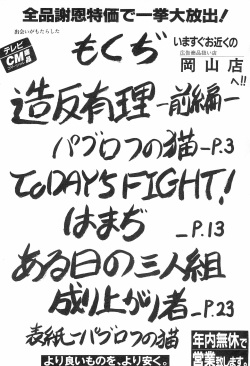 全品謝恩特価で一挙大放出!
出会いがもたらした
テレビ
CM
商品
もくぢ
いますぐお近くの
広告商品扱い店
岡山店
へ!!
造反有理 ー前編ー
パブロフの猫 ―P.3
ToDAY'S FIGHT!
はまぢ
―P.13
ある日の三人組
成り上がり者 ―P.23
表紙ーパブロフの猫
年内無休で
営業致します。
より良いものを、より安く。